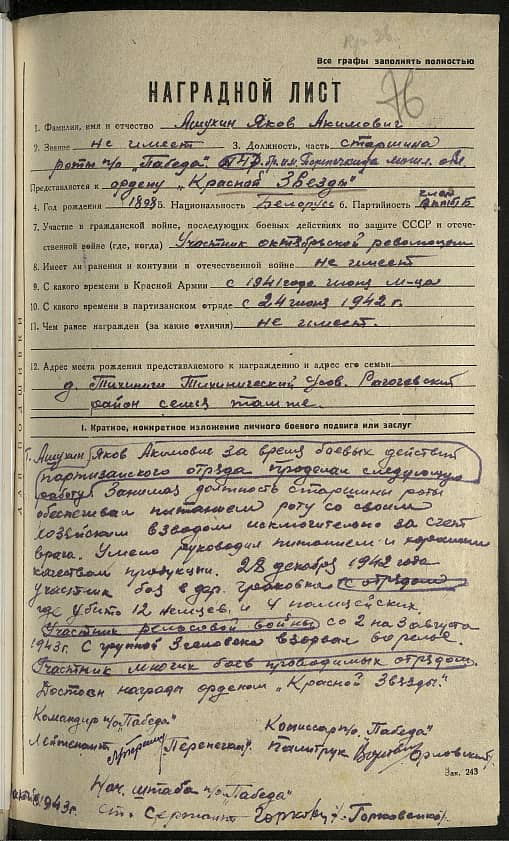 Все графы заполнять полностью
76
НАГРАДНОЙ ЛИСТ
1. Фамилия, имя и отчество Ашукин Яков Акимович
2. Звание не имеет 3. Должность, часть старшина
роты п/о "Победа"
Представляется к ордену „Красной Звезды"
4. Год рождения 1898 5. Национальность Белорусс 6. Партийность член
7. Участие в гражданской войне, последующих боевых действиях по защите СССР и отече-
ственной войне (где, когда) Участник октябрьской революции
8. Имеет ли ранения и контузии в отечественной войне не имеет
9. С какого времени в Красной Армии с 1941 года июня м-ца
10. С какого времени в партизанском отряде с 24 июня 1942 г.
11. Чем ранее награжден (за какие отличия) не имеет.
12. Адрес места рождения представляемого к награждению и адрес его семьи
д. Тихиничи Тихинический с/сов. Рогачевский
район семья там же.
I. Краткое, конкретное изложение личного боевого подвига или заслуг
Ашукин Яков Акимович за время боевых действий
партизанского отряда проделал следующую
работу: Занимая должность старшины роты
обеспечивал питанием роту со своим
хозяйским взводом исключительно за счет
врага. Умело руководил питанием и хорошим
качеством продукции. 28 декабря 1942 года
участник боя в дер. с отрядом
где убито 12 немцев и 4 полицейских.
Участник рельсовой войны со 2 на 3 августа
1943г. С группой 3 человека взорвал рельс.
Участник многих боев проводимых отрядом.
Достоин награды орденом „Красной Звезды".
Командир п/о „Победа"
Комиссар п/о „Победа"
Лейтенант
Политрук /Орловский/
Зак. 243
Нач. штаба п/о „Победа"
1943г.
ст. Сержант
ДЛЯ ПОДШИВКИ